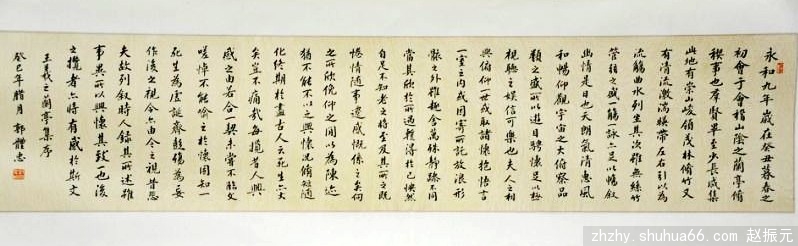 永和九年歲在癸丑暮春之
初會于會稽山陰之蘭亭脩
禊事也群賢畢至少長咸集
此地有崇山峻領茂林脩竹又
有清流激湍暎帶左右引以為
流觴曲水列坐其次雖無絲竹
管絃之盛一觴一詠亦足以暢敘
幽情是日也天朗氣清惠風
和暢仰觀宇宙之大俯察品
類之盛所以遊目騁懷足以極
視聽之娛信可樂也夫人之相
與俯仰一世或取諸懷抱悟言
一室之內或因寄所託放浪形
骸之外雖趣舍萬殊靜躁不同
當其欣於所遇暫得於己怏然
自足不知老之將至及其所之既
惓情隨事遷感慨係之矣向
之所欣俛仰之間以為陳迹
猶不能不以之興懷況脩短隨
化終期於盡古人云死生亦大
矣豈不痛哉每攬昔人興
感之由若合一契未嘗不臨文
嗟悼不能喻之於懷固知一
死生為虛誕齊彭殤為妄
作後之視今亦由今之視昔悲
夫故列敘時人錄其所述雖世
事異所以興懷其致一也後
之攬者亦將有感於斯文
王羲之蘭亭集序
癸巳年腊月 郭體忠
zhzhy.shuhua66.com 赵振元